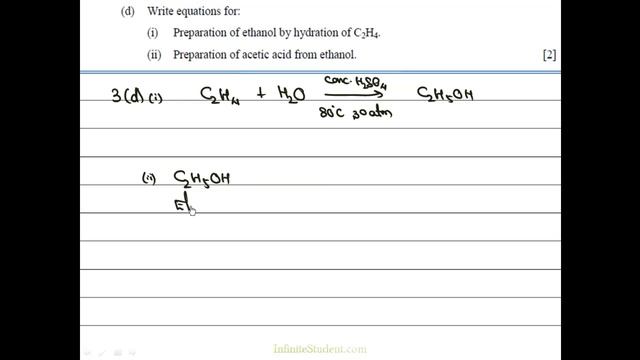 (d) Write equations for:
(i) Preparation of ethanol by hydration of C₂H₄.
(ii) Preparation of acetic acid from ethanol. [2]
conc. H₂SO₄
3(d) (i) C₂H₄ + H₂O → C₂H₅OH
80°C 30 atm
(ii) C₂H₅OH
InfiniteStudent.com